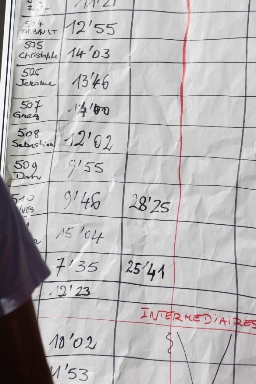 12'55
505
Christophe 14'03
506
Jerome 13'46
507
Greg
508
Sebastien 12'02
509
Dan 9'55
9'46 28'25
15'04
7'35 25'41
12'23
INTERMEDIAIRES
10'02